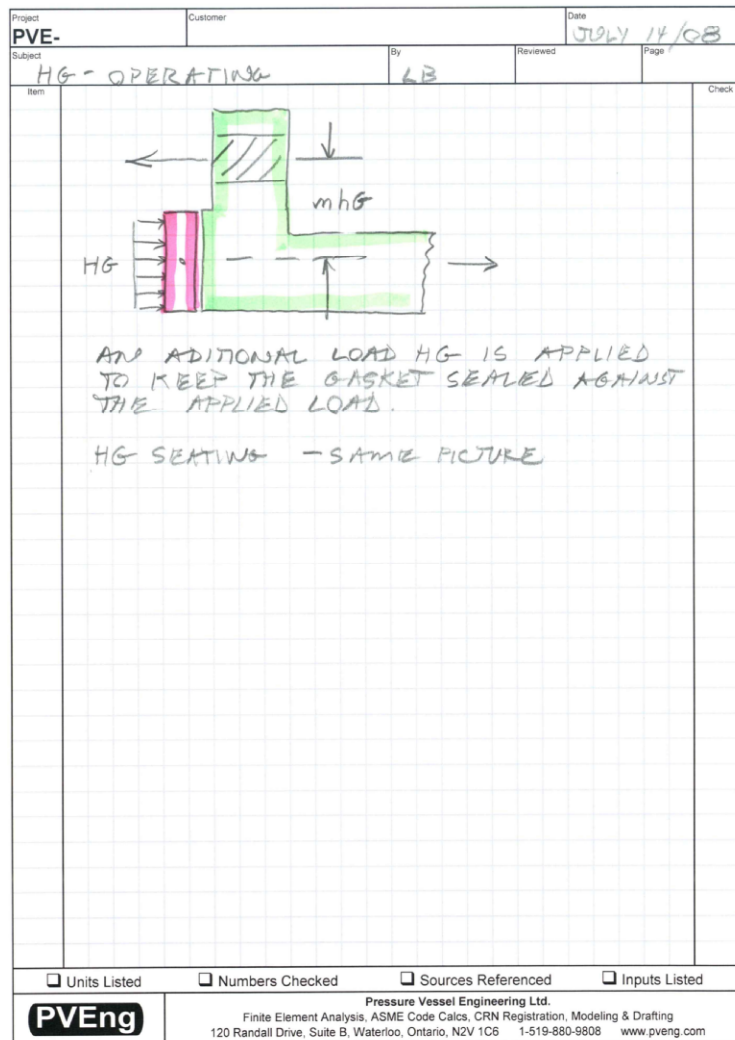 Project
Customer
Date
PVE-
JULY 14/08
Subject
By
Reviewed
Page
HG - OPERATING
LB
Item
Check
mhG
HG
AN ADITIONAL LOAD HG IS APPLIED
TO KEEP THE GASKET SEALED AGAINST
THE APPLIED LOAD.
HG SEATING - SAME PICTURE
Units Listed
Numbers Checked
Sources Referenced
Inputs Listed
PVEng
Pressure Vessel Engineering Ltd.
Finite Element Analysis, ASME Code Calcs, CRN Registration, Modeling & Drafting
120 Randall Drive, Suite B, Waterloo, Ontario, N2V 1C6 1-519-880-9808 www.pveng.com